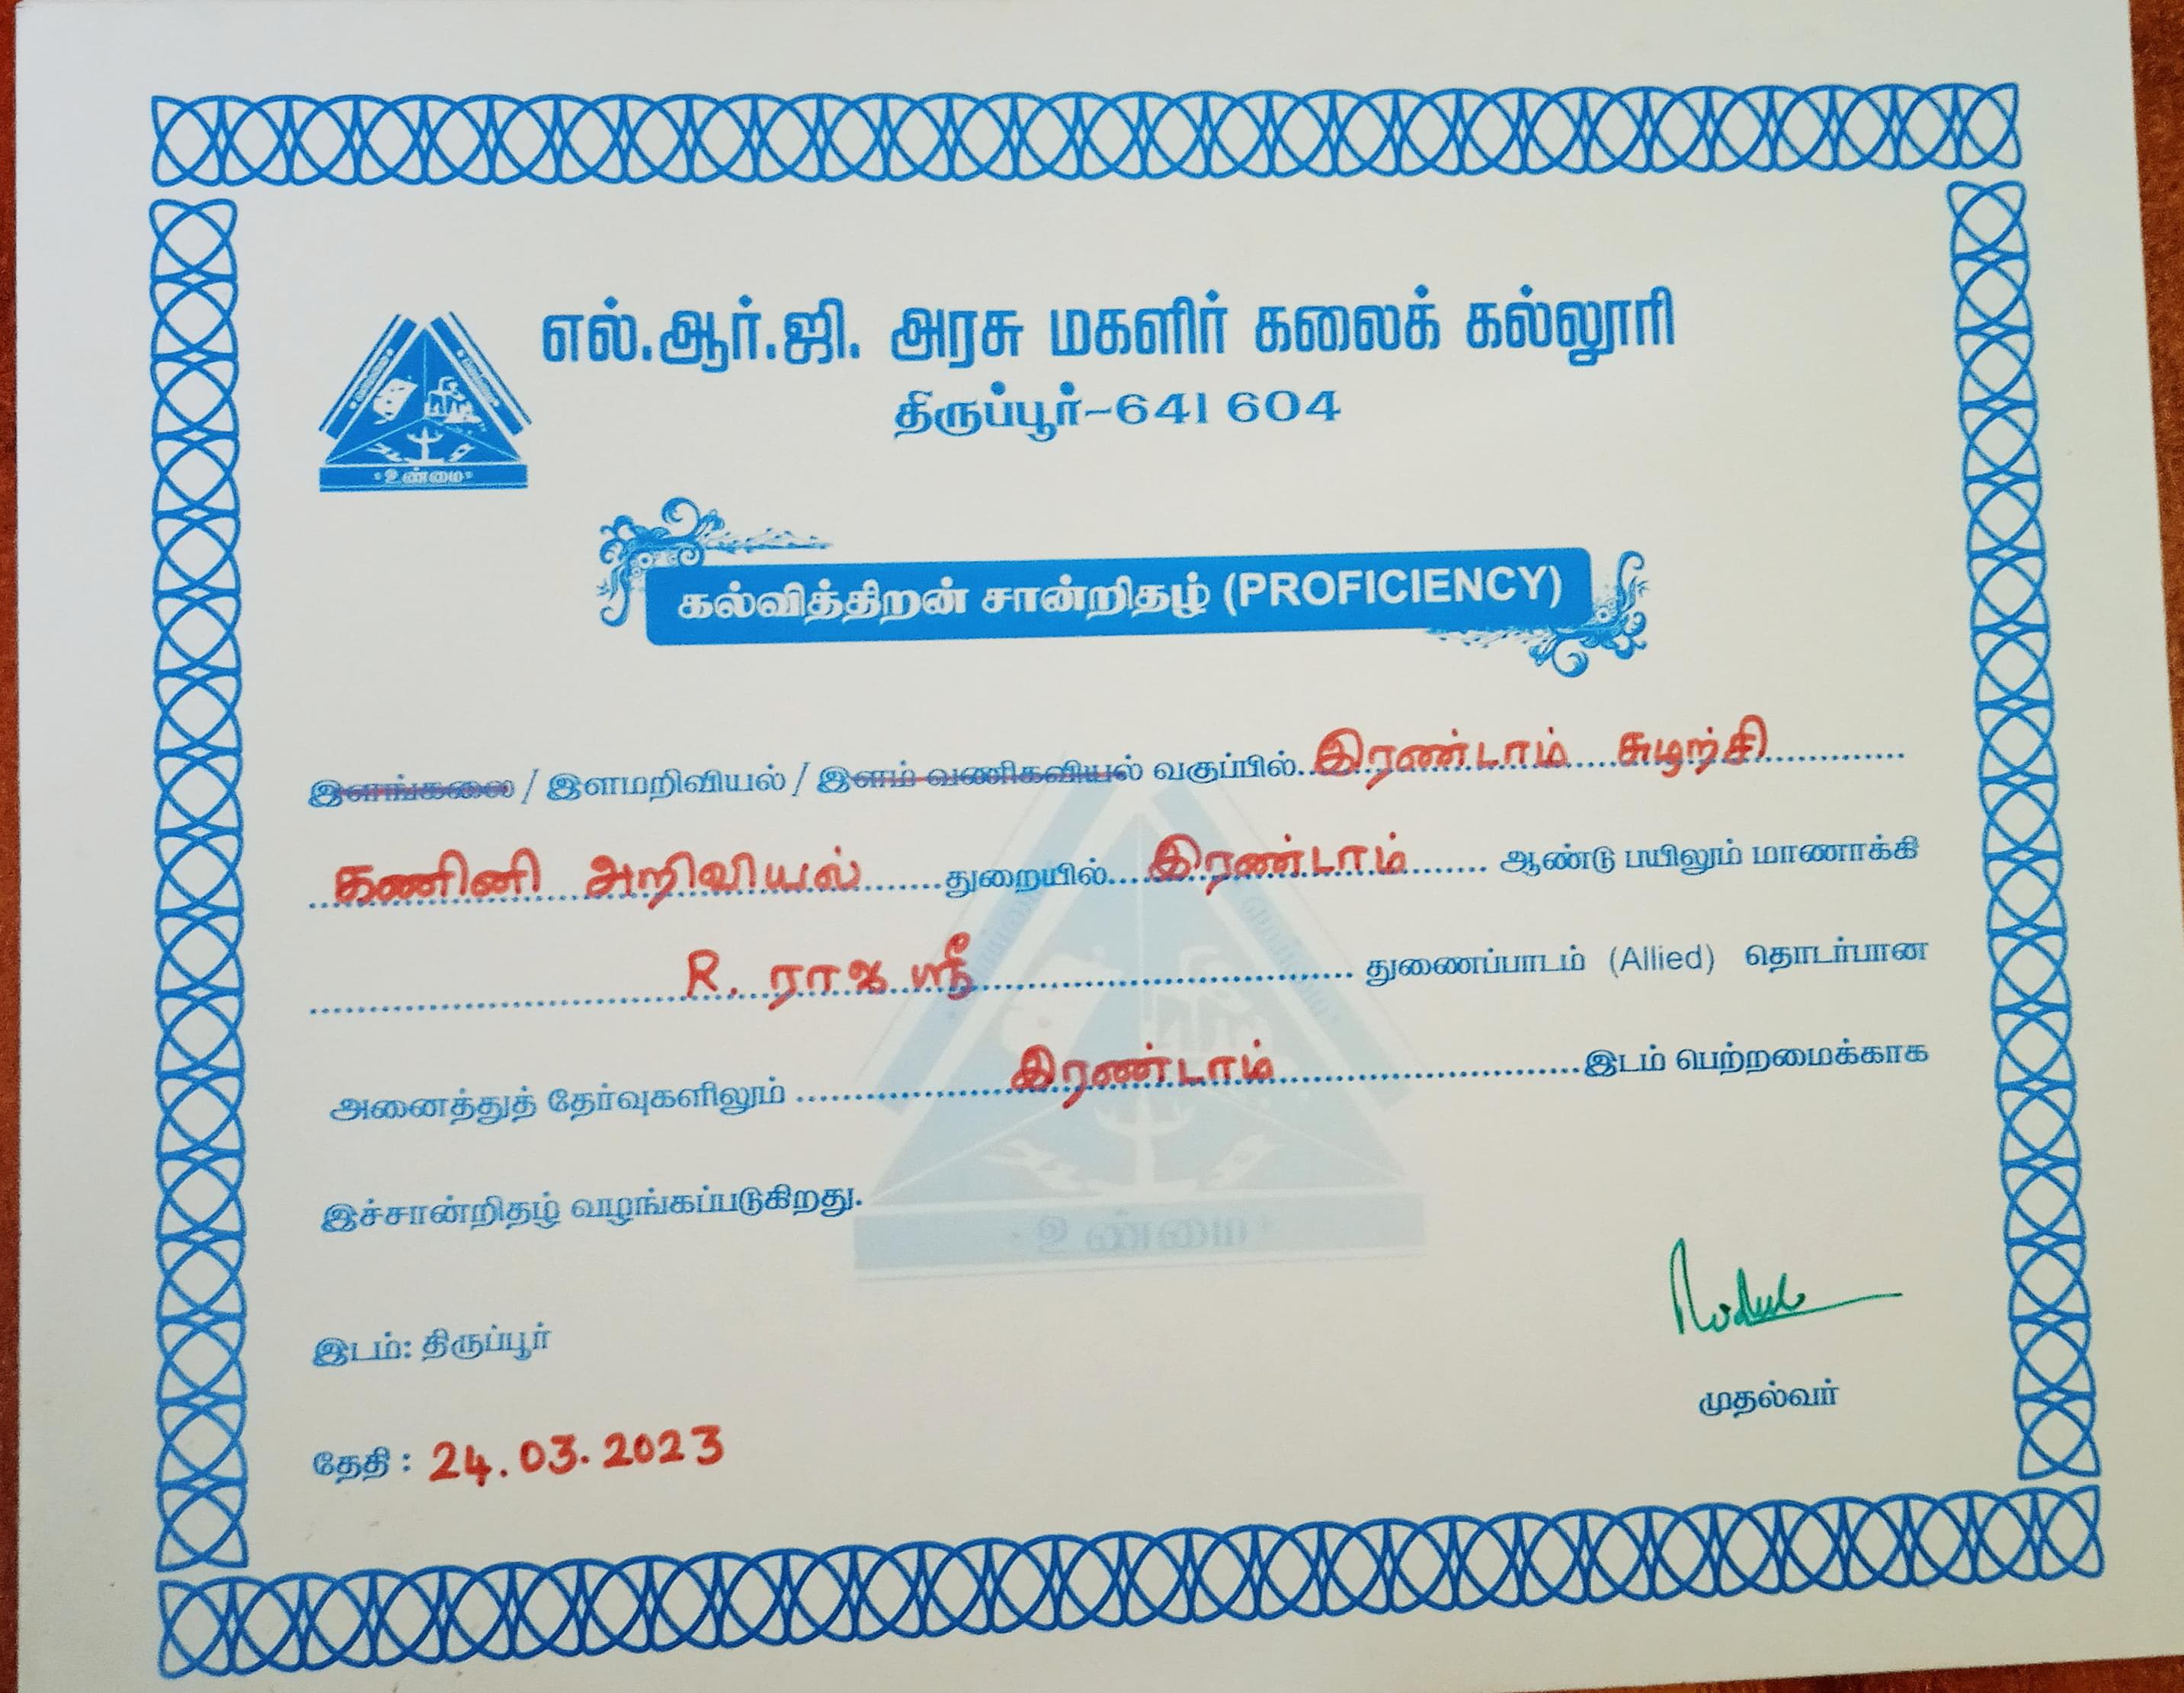 எல்.ஆர்.ஜி. அரசு மகளிர் கலைக் கல்லூரி
திருப்பூர்-641 604
உண்மை
கல்வித்திறன் சான்றிதழ் (PROFICIENCY)
இளங்கலை / இளமறிவியல் / இளம் வணிகவியல் வகுப்பில் இரண்டாம் சுழற்சி
கணினி அறிவியல் துறையில் இரண்டாம் ஆண்டு பயிலும் மாணாக்கி
R. ராஜ ஸ்ரீ துணைப்பாடம் (Allied) தொடர்பான
அனைத்துத் தேர்வுகளிலும் இரண்டாம் இடம் பெற்றமைக்காக
இச்சான்றிதழ் வழங்கப்படுகிறது.
உண்மை
இடம்: திருப்பூர்
முதல்வர்
தேதி : 24.03.2023